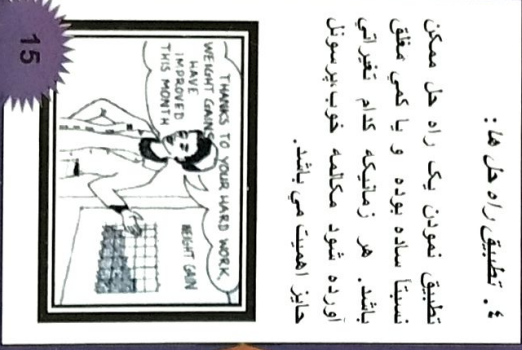 ٤. تطبيق راه حل ها :
تطبيق نمودن يک راه حل ممکن
نسبتاً ساده بوده و يا کمي مغلق
باشد. هر زمانيکه کدام تغيراتي
آورده شود مکالمه خوب پرسونل
حايز اهميت مي باشد.
THANKS TO YOUR HARD WORK,
WEIGHT GAINS
HAVE
IMPROVED
THIS MONTH
WEIGHT GAIN
15